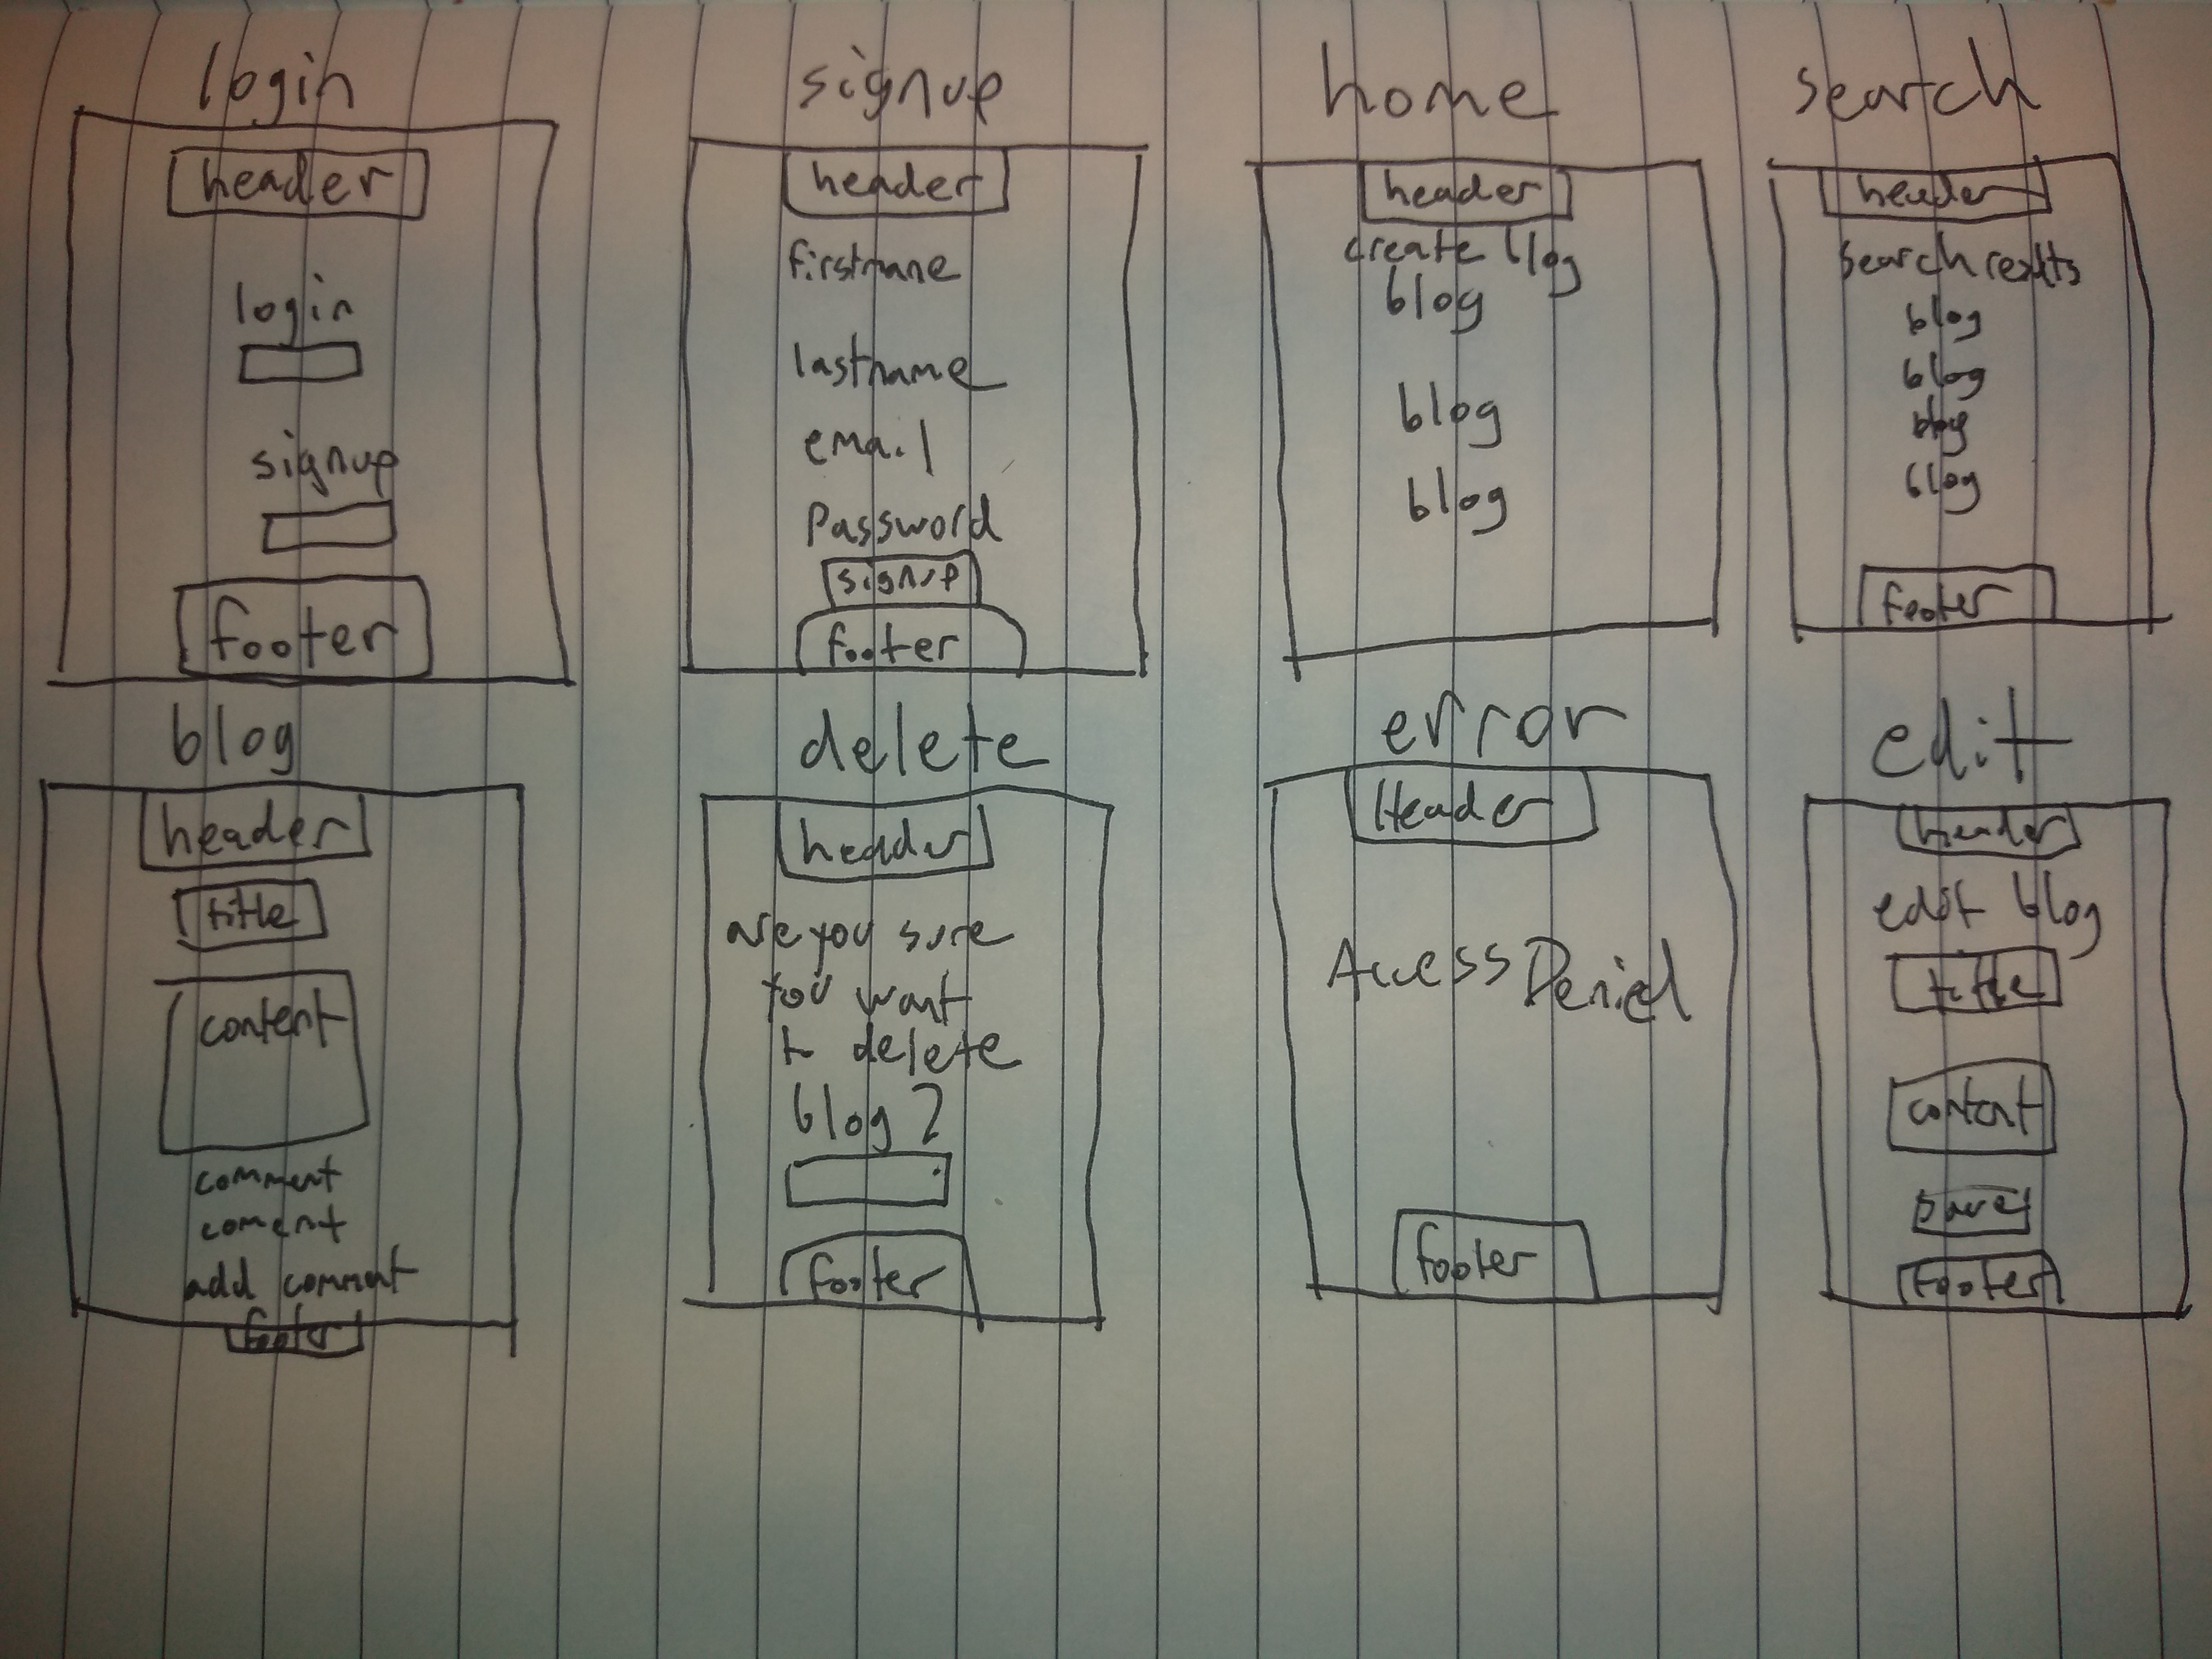 login
header
login
signup
footer
signup
header
firstname
lastname
email
Password
signup
footer
home
header
create blog
blog
blog
blog
search
header
search results
blog
blog
blog
blog
footer
blog
header
title
content
comment
coment
add comment
footer
delete
header
are you sure
you want
to delete
blog?
footer
error
Header
Access Denied
footer
edit
header
edit blog
title
content
save
footer